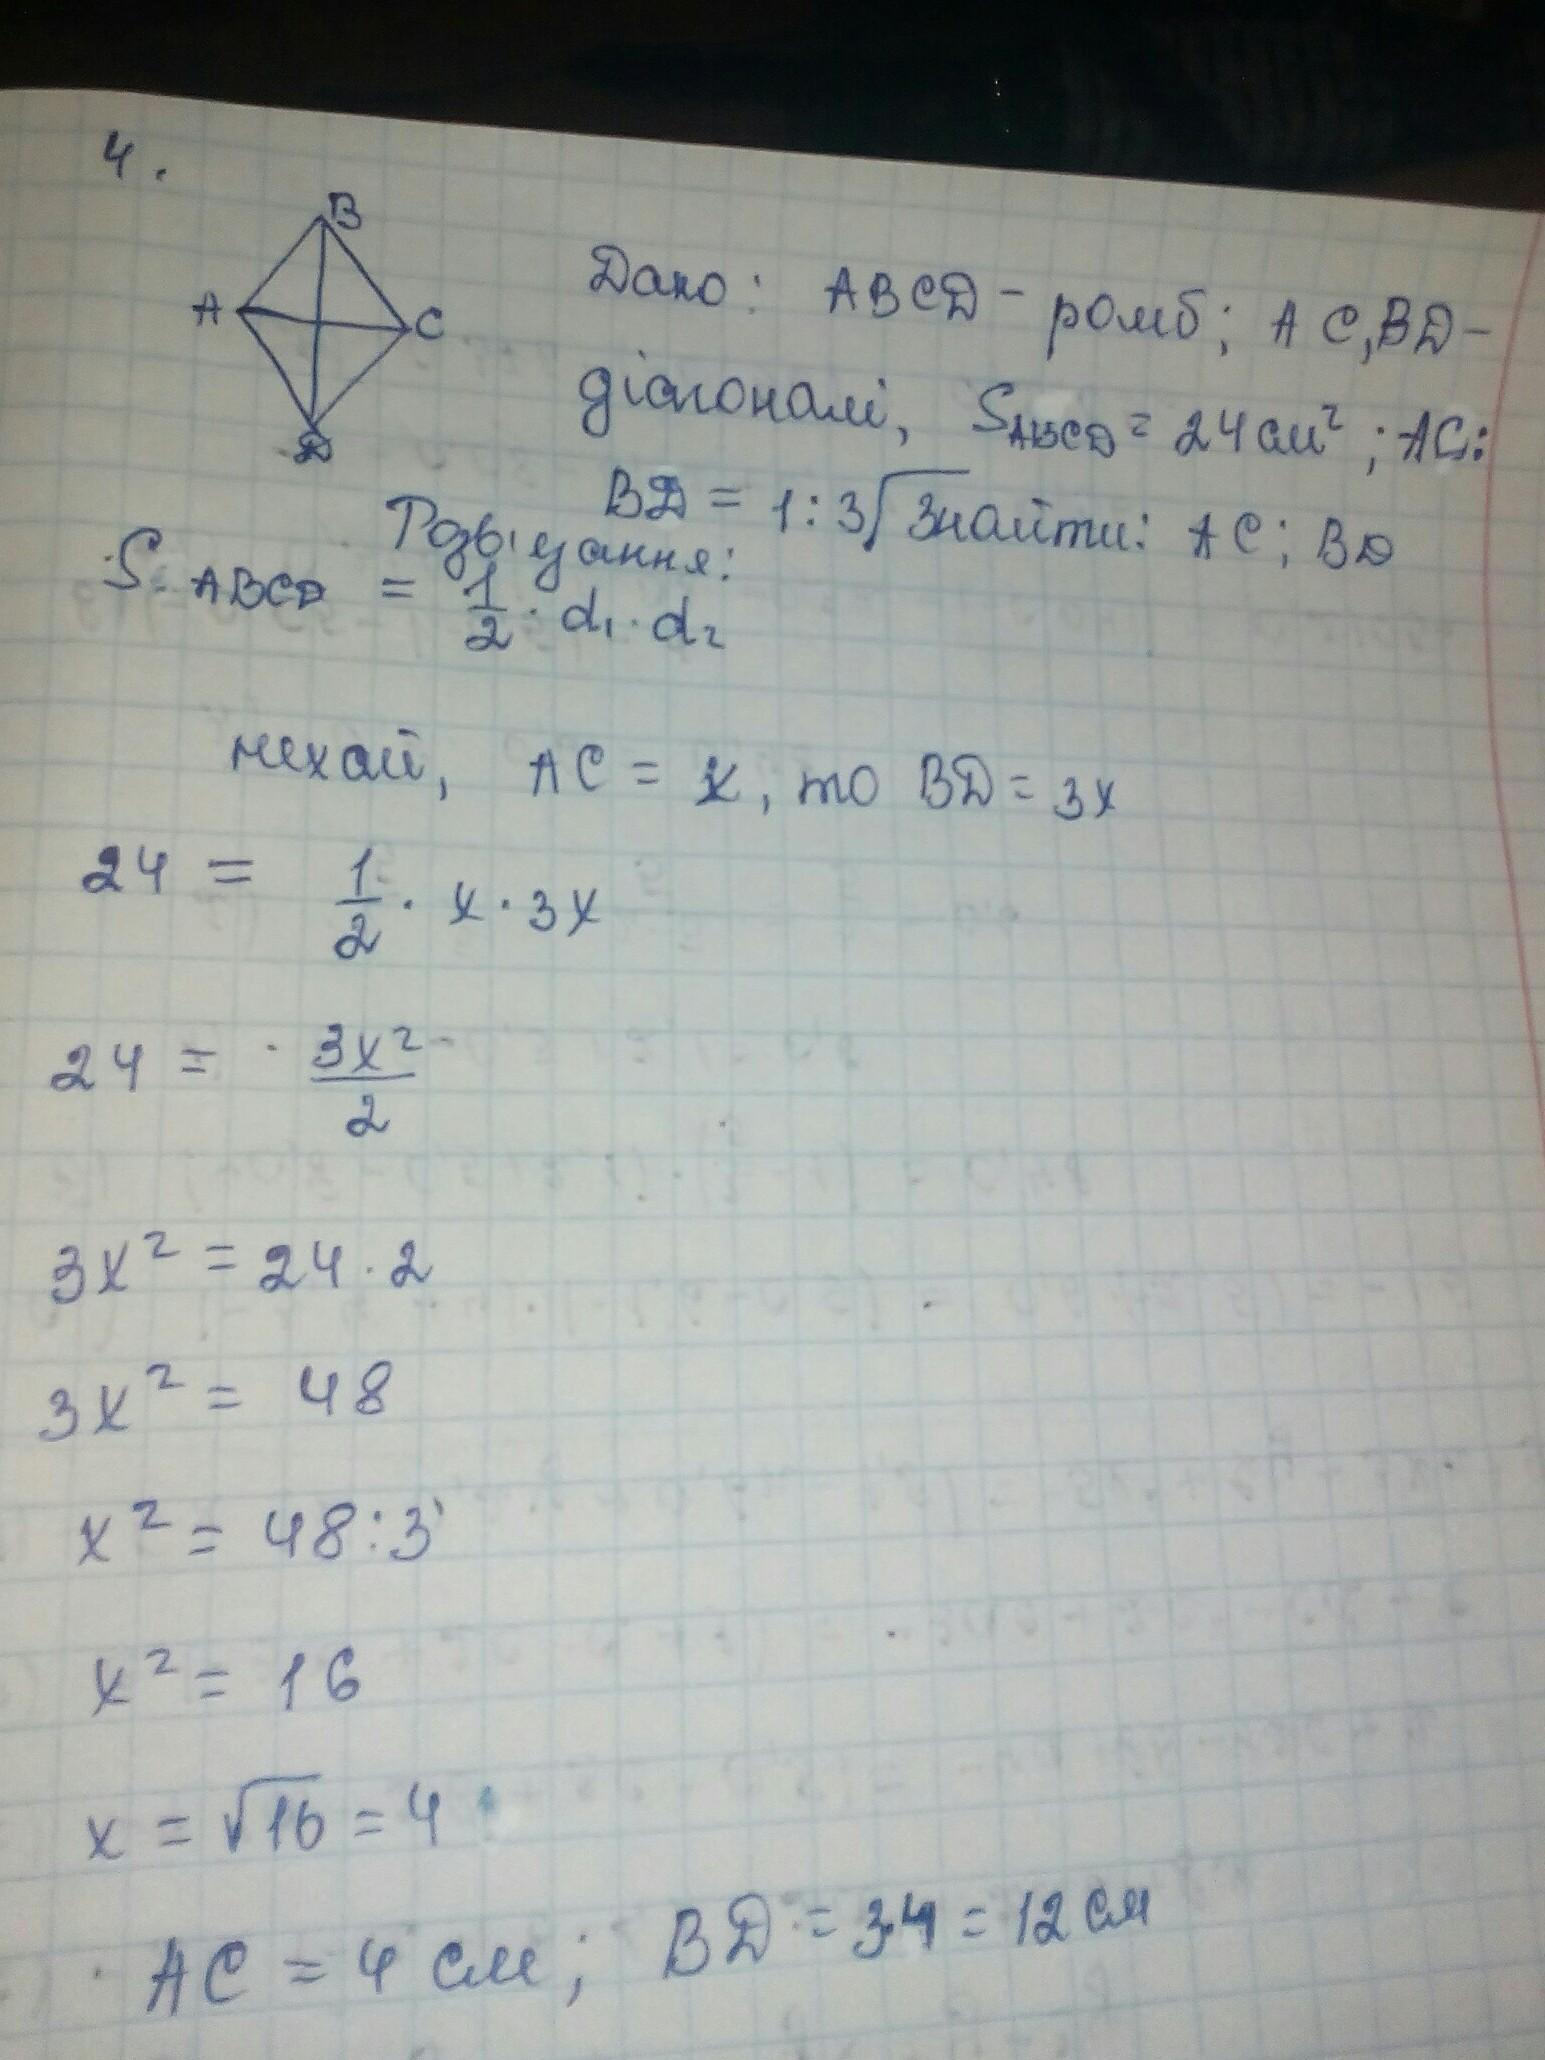 4.
B
A
C
D
Дано: ABCD - ромб; AC, BD -
діагоналі, SABCD = 24 см²; AC:
BD = 1:3 Знайти: AC; BD
Розв'язання:
S ABCD = 1/2 · d₁ · d₂
нехай, AC = x, то BD = 3x
24 = 1/2 · x · 3x
24 = 3x²/2
3x² = 24 · 2
3x² = 48
x² = 48:3
x² = 16
x = √16 = 4
AC = 4 см; BD = 3·4 = 12 см